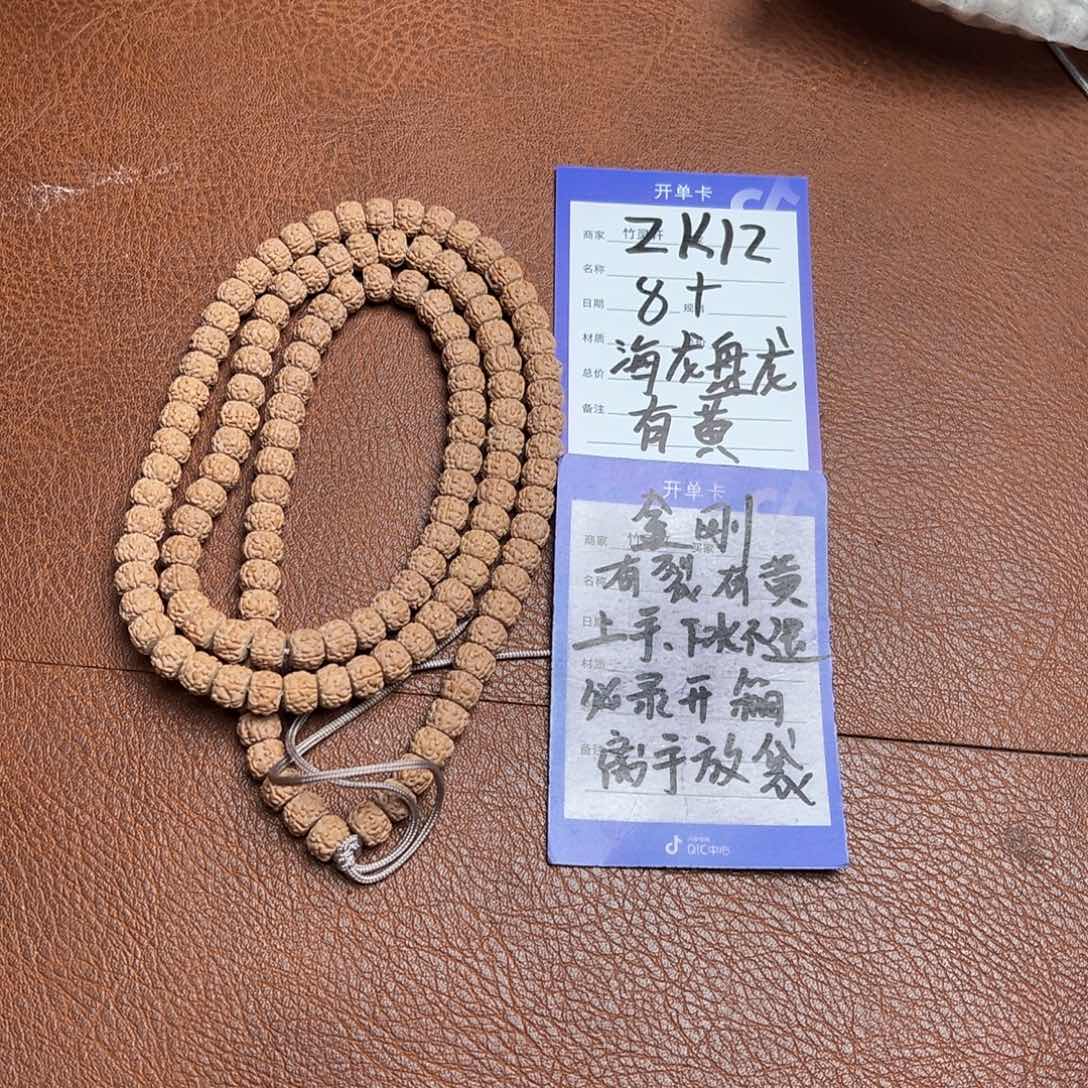 开单卡
商家 竹
ZK12
名称
日期
8+
材质
海龙盘龙
总价
备注
有黄
开单卡
金刚
商家 竹
买家
名称
有裂有黄
日期
上手、下水不退
材质
必录开箱
备注
离手放袋
QIC中心